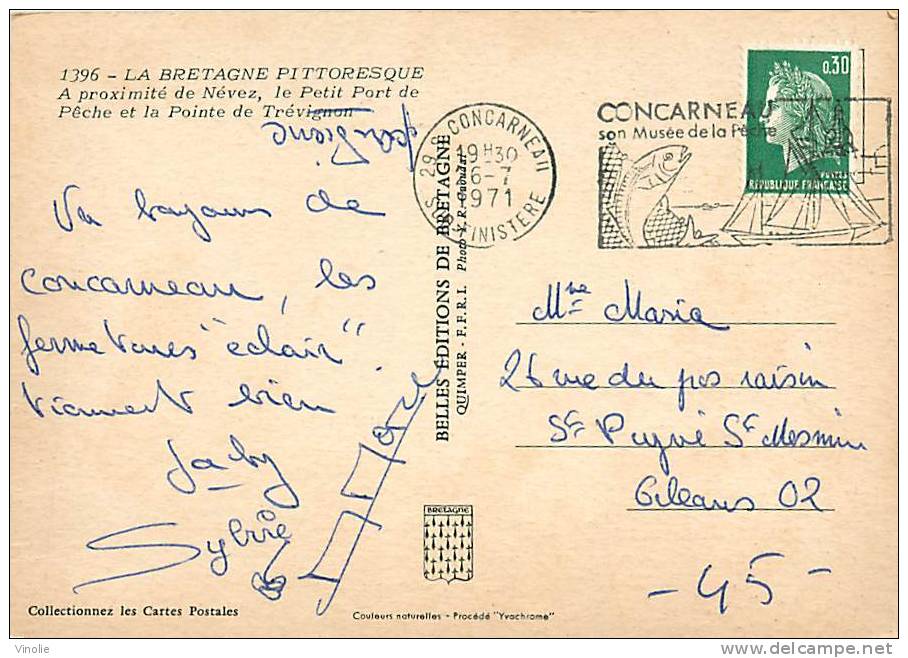 1396 - LA BRETAGNE PITTORESQUE
A proximité de Névez, le Petit Port de
Pêche et la Pointe de Trévignon
Un bayons de
Concarneau, les
fermetures "éclair"
tiennent bien
Gaby
Sylvie
Collectionnez les Cartes Postales
BELLES ÉDITIONS DE BRETAGNE
QUIMPER - F.F.R.I.
BRETAGNE
Couleurs naturelles - Procédé "Yvochrome"
29.S CONCARNEAU
19H30
6-7
1971
SUD-FINISTERE
CONCARNEAU
son Musée de la Pêche
0.30
POSTES
REPUBLIQUE FRANÇAISE
Mme Maria
26 rue du pos raisin
St Pryvé St Mesmin
Orléans 02
- 45 -
Vinolie
delcampe.net